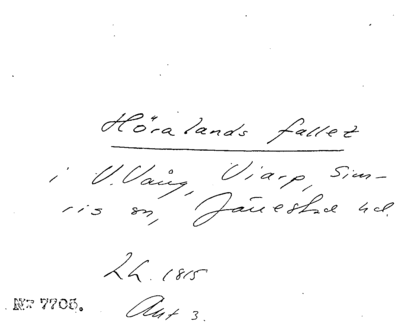 Höralands fallet
i V. Vång, Viarp, Sim-
ris sn, Järrestad hd.
Lh. 1815
Akt 3.
Nr 7705.